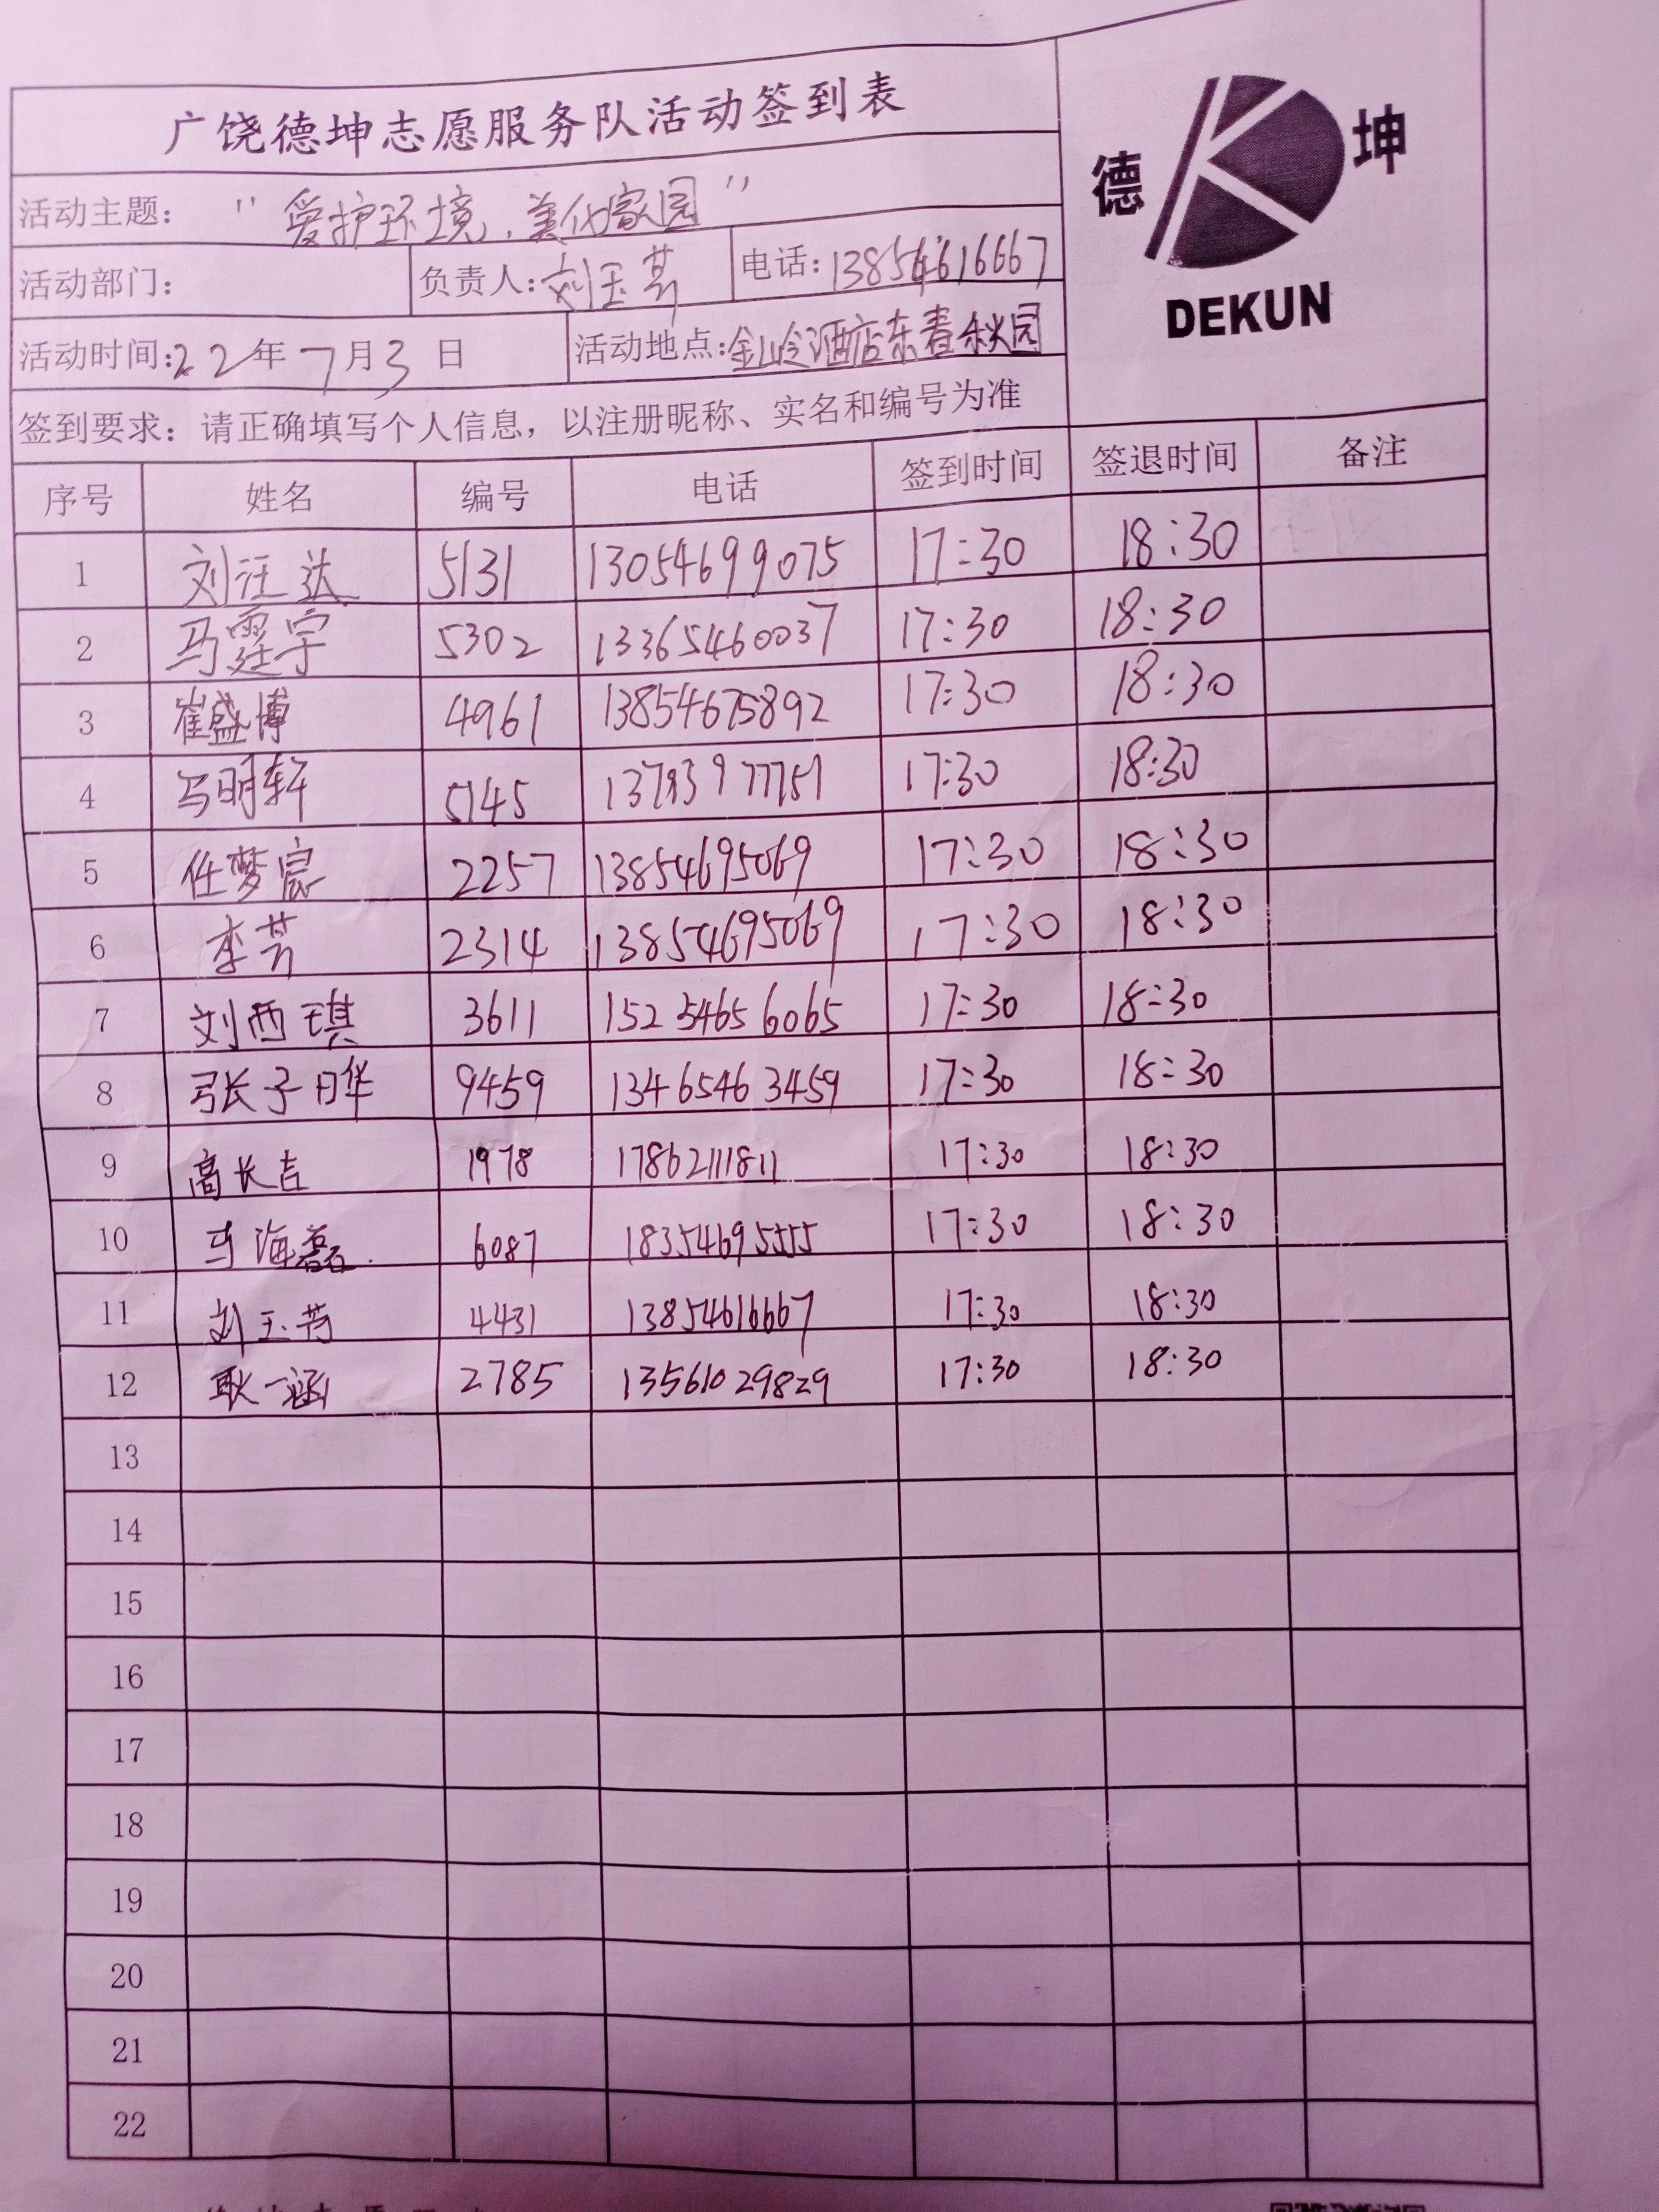 广饶德坤志愿服务队活动签到表
德 坤
DEKUN
活动主题： "爱护环境，美化家园"
活动部门： 负责人：刘玉芳 电话：13854616667
活动时间：22年7月3日 活动地点：金岭酒店东春秋园
签到要求：请正确填写个人信息，以注册昵称、实名和编号为准
序号 姓名 编号 电话 签到时间 签退时间 备注
1 刘汪达 5131 13054699075 17:30 18:30
2 马霆宇 5302 13365460037 17:30 18:30
3 崔盛博 4961 13854675892 17:30 18:30
4 马明轩 5145 17:30 18:30
5 任梦宸 2257 13854695069 17:30 18:30
6 李芳 2314 13854695069 17:30 18:30
7 刘西琪 3611 15254656065 17:30 18:30
8 张子晔 9459 13465463459 17:30 18:30
9 高长吉 1978 17862111811 17:30 18:30
10 马海磊 6087 18354695555 17:30 18:30
11 刘玉芳 4431 13854616667 17:30 18:30
12 耿一涵 2785 13561029829 17:30 18:30
13
14
15
16
17
18
19
20
21
22